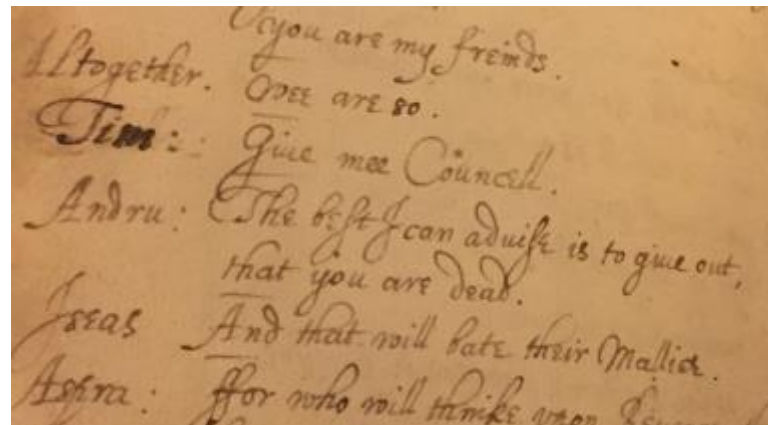 you are my freinds.
Altogether. Wee are so.
Tim: Giue mee Councell.
Andru: The best I can aduise is to giue out,
that you are dead.
Iseas And that will bate their Mallice.
ffor who will thinke vpon